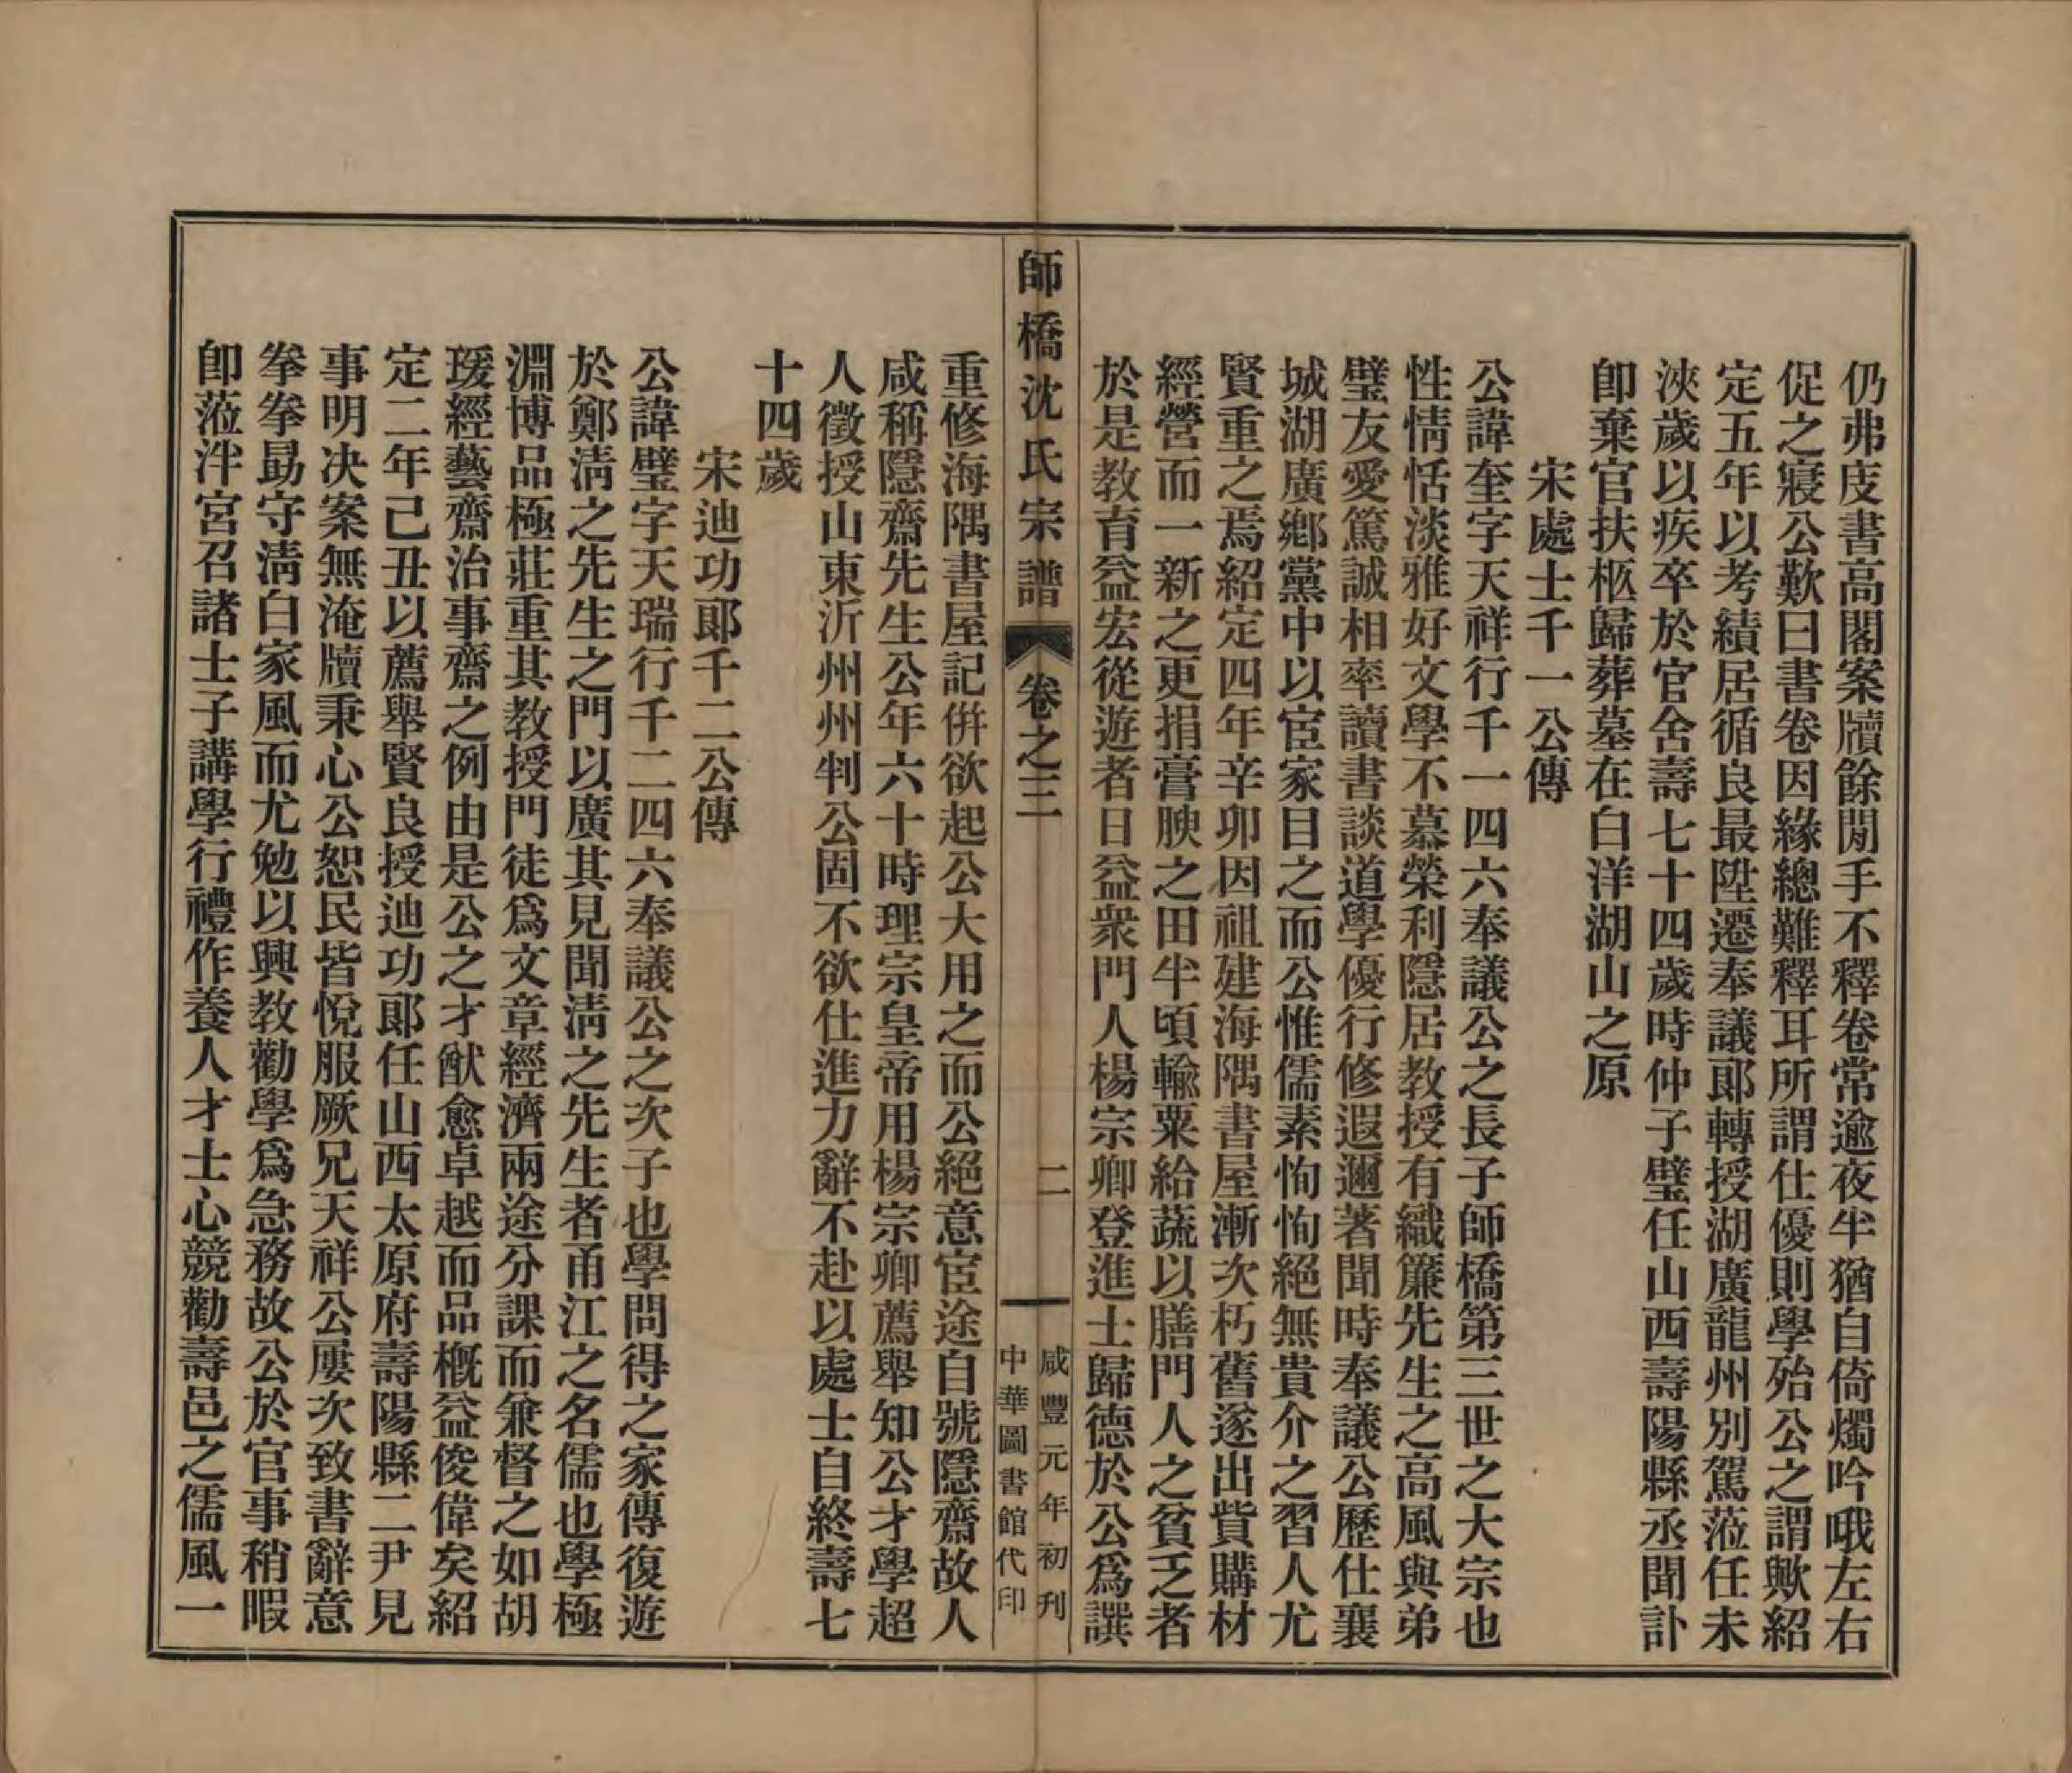 仍弗庋書高閣案牘餘閒手不釋卷常逾夜半猶自倚燭吟哦左右
促之寢公歎曰書卷因緣總難釋耳所謂仕優則學殆公之謂歟紹
定五年以考績居循良最陞遷奉議郞轉授湖廣龍州別駕蒞任未
浹歲以疾卒於官舍壽七十四歲時仲子璧任山西壽陽縣丞聞訃
卽棄官扶柩歸葬墓在白洋湖山之原
宋處士千一公傳
公諱奎字天祥行千一四六奉議公之長子師橋第三世之大宗也
性情恬淡雅好文學不慕榮利隱居教授有織簾先生之高風與弟
璧友愛篤誠相率讀書談道學優行修遐邇著聞時奉議公歷仕襄
城湖廣鄉黨中以宦家目之而公惟儒素恂恂絕無貴介之習人尤
賢重之焉紹定四年辛卯因祖建海隅書屋漸次朽舊遂出貲購材
經營而一新之更捐膏腴之田半頃輸粟給蔬以膳門人之貧乏者
於是教育益宏從遊者日益衆門人楊宗卿登進士歸德於公爲譔
師橋沈氏宗譜
卷之三
二
咸豐元年初刊
中華圖書館代印
重修海隅書屋記倂欲起公大用之而公絕意宦途自號隱齋故人
咸稱隱齋先生公年六十時理宗皇帝用楊宗卿薦舉知公才學超
人徵授山東沂州州判公固不欲仕進力辭不赴以處士自終壽七
十四歲
宋迪功郞千二公傳
公諱璧字天瑞行千二四六奉議公之次子也學問得之家傳復遊
於鄭淸之先生之門以廣其見聞淸之先生者甬江之名儒也學極
淵博品極莊重其教授門徒爲文章經濟兩途分課而兼督之如胡
瑗經藝齋治事齋之例由是公之才猷愈卓越而品槪益俊偉矣紹
定二年己丑以薦舉賢良授迪功郞任山西太原府壽陽縣二尹見
事明決案無淹牘秉心公恕民皆悅服厥兄天祥公屢次致書辭意
拳拳勗守淸白家風而尤勉以興教勸學爲急務故公於官事稍暇
卽蒞泮宮召諸士子講學行禮作養人才士心競勸壽邑之儒風一